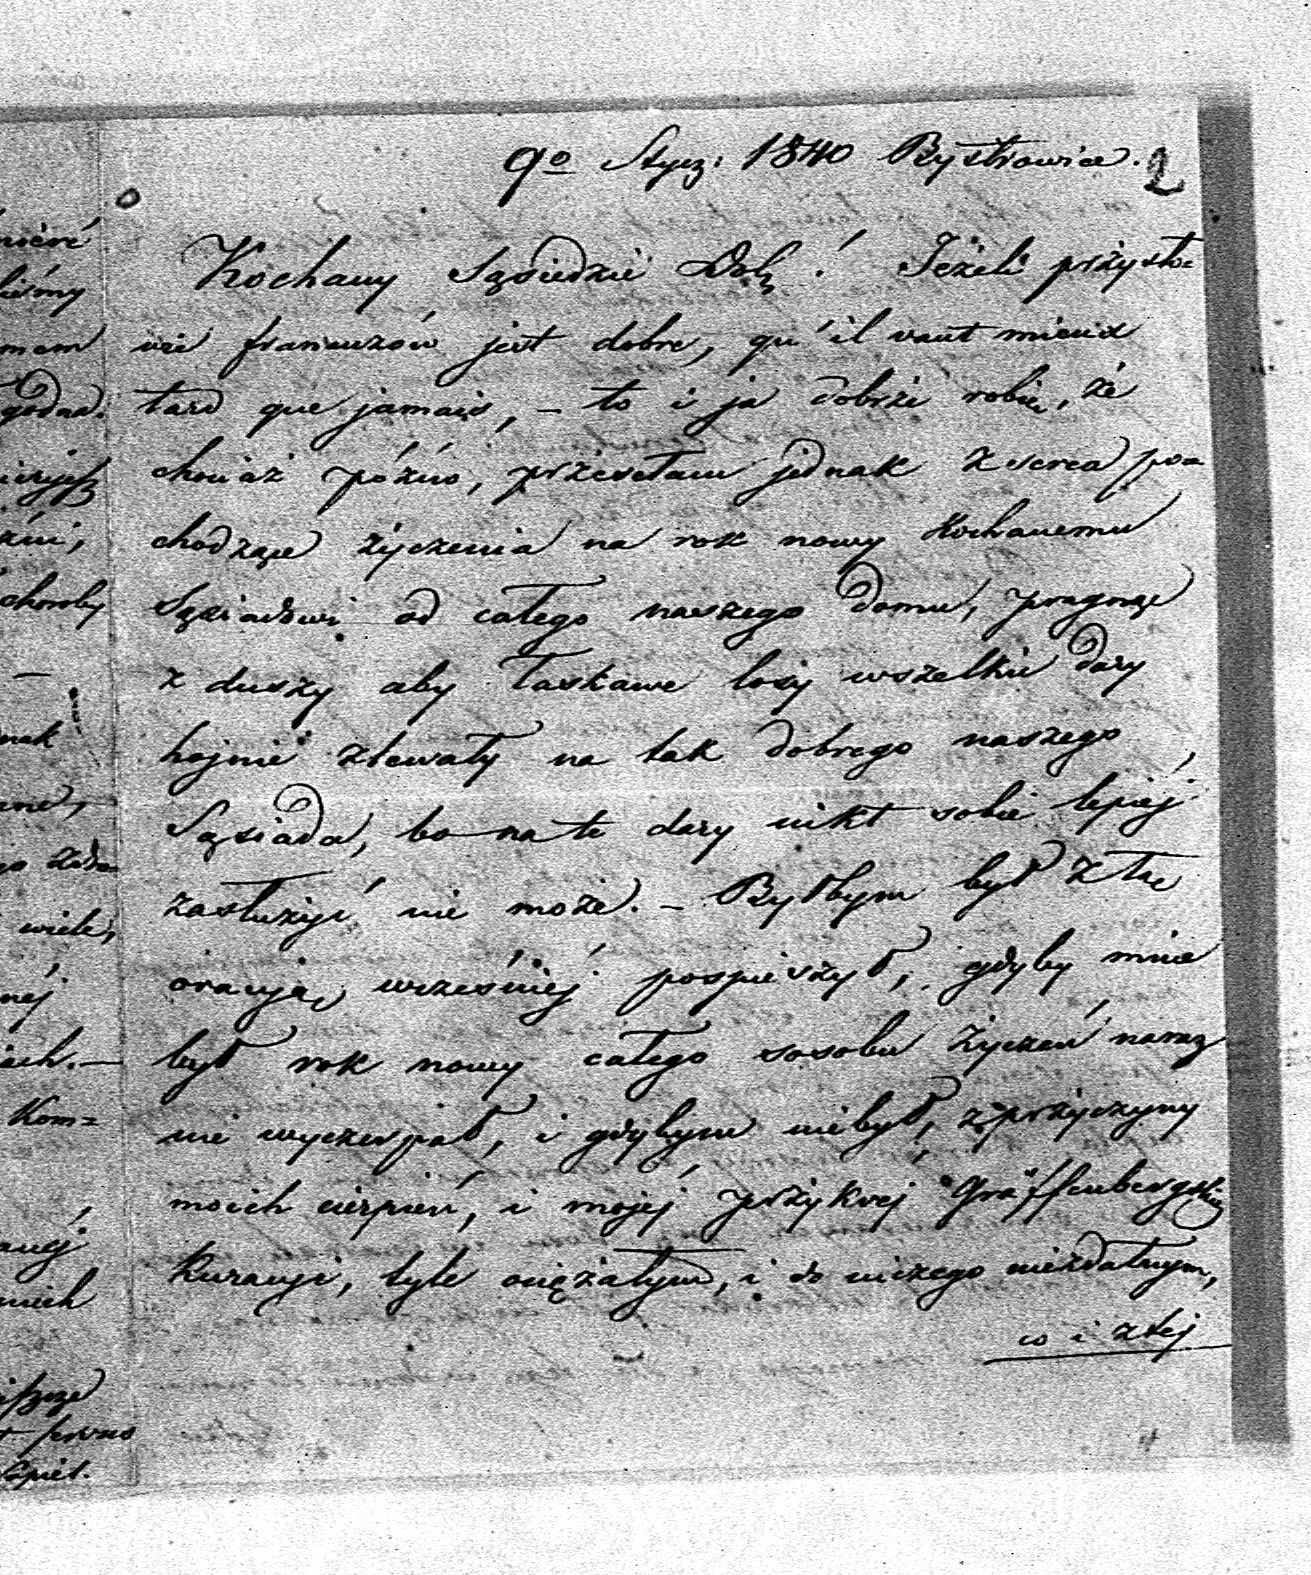 9o Stycz: 1840 Bystrowice. 2
Kochany Sąsiedzie Dobr ! Jeżeli przysło=
wie francuzów jest dobre, qu'il vaut mieux
tard que jamais, – to i ja dobrze robię, że
chociaż późno, przesełam jednak z serca po=
chodzące życzenia na rok nowy Kochanemu
Sąsiadowi od całego naszego domu, pragnąc
z duszy aby łaskawe losy wszelkie dary
hojnie zlewały na tak dobrego naszego
Sąsiada, bo na te dary nikt sobie lepiéj
zasłużyć nie może. – Byłbym był z tą
oracyją wcześniéj pospieszył, gdyby mnie
był rok nowy całego zosobu życzeń naraz
nie wyczerpał, i gdybym niebył, z przyczyny
moich cierpień, i mojéj przykréj Gräffenbergskiéj
Kuracyi, tyle ociężałym, i do niczego niezdatnym,
co i złéj
nieré
liśmy
mem
godna.
źni,
choroby
–
nak
wiele,
néj
iach. –
Kom=
niech